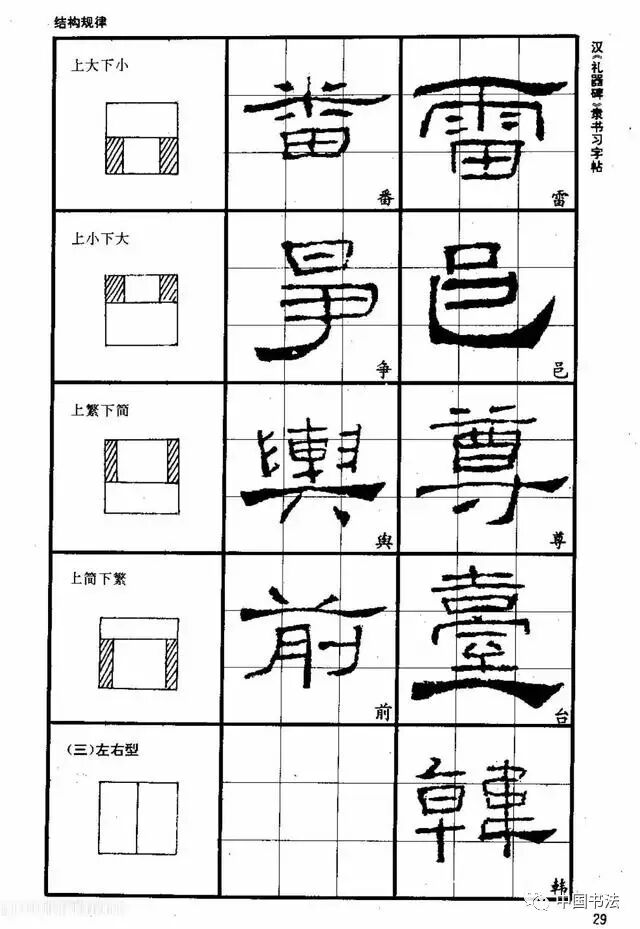 结构规律
汉《礼器碑》隶书习字帖
上大下小
番
雷
上小下大
争
邑
上繁下简
舆
尊
上简下繁
前
台
(三)左右型
韩
中国书法
29